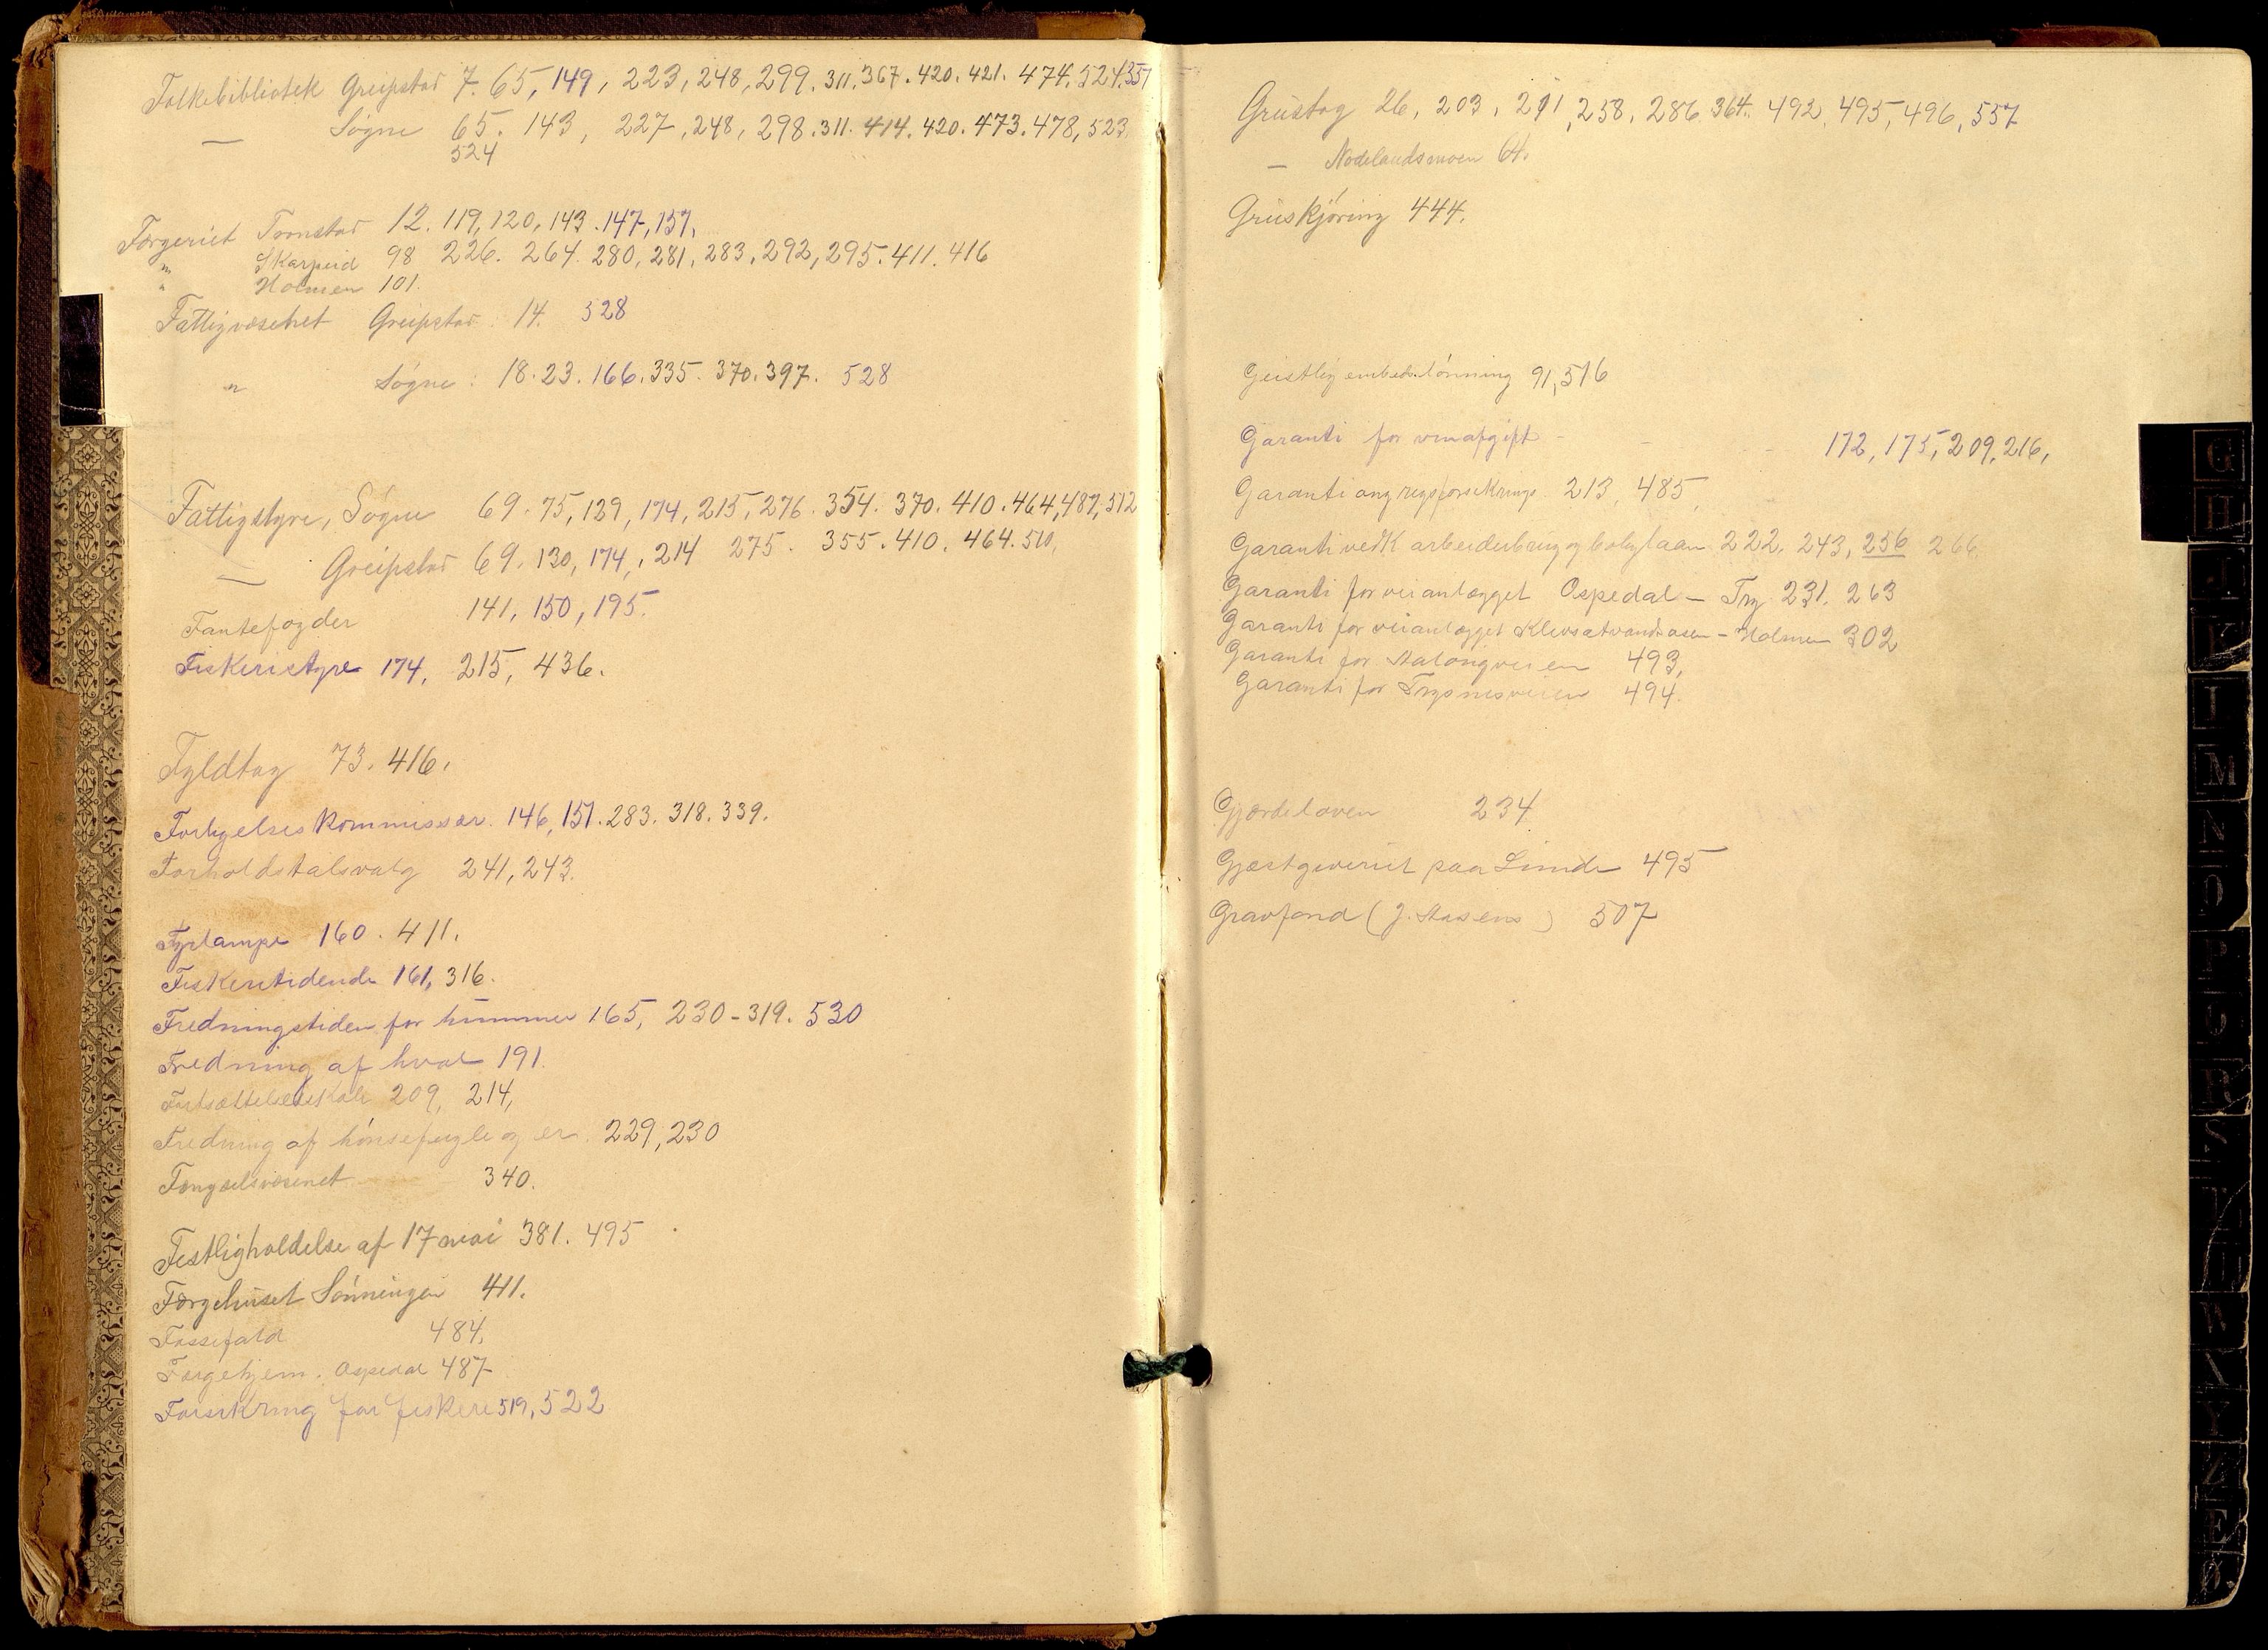 Folkebibliotek Greipstad 7. 65, 149, 223, 248, 299. 311. 367. 420. 421. 474. 524. 357
— Søgne 65. 143, 227, 248, 298. 311. 414. 420. 473. 478, 523.
524
Færgeriet Tronstad 12. 119, 120, 143. 147, 157.
" Skarpeid 98 226. 264. 280, 281, 283, 292, 295. 411. 416
" Holmen 101.
Fattigvæsenet Greipstad 14. 528
" Søgne: 18. 23. 166. 335. 370. 397. 528
Fattigstyre, Søgne 69. 75, 129, 174, 215, 276. 354. 370. 410. 464, 487, 512
— Greipstad 69. 130, 174, 214 275. 355. 410. 464. 510,
Fantefogder 141, 150, 195.
Fiskeristyre 174, 215, 436.
Fyldtag 73. 416.
Forligelseskommissær. 146, 151. 283. 318. 339.
Forholdstalsvalg 241, 243.
Fyrlampe 160. 411.
Fiskeritidende 161, 316.
Fredningstiden for hummer 165, 230 - 319. 530
Fredning af hval 191.
Fortsættelsesskole 209, 214,
Fredning af hønsefugle og er. 229, 230
Fængselsvæsenet 340.
Festligholdelse af 17 mai 381. 495
Færgehuset Lønningen 411.
Fossefald 484.
Forgehjem. Ospedal 487
Forsikring for fiskere 519, 522
Grustag 26, 203, 211, 258, 286. 364. 492, 495, 496, 557
— Nodelandsmoen 61.
Gruskjøring 444.
Geistlig embeds lønning 91, 516
Garanti for vinafgift - - - 172, 175, 209, 216,
Garanti ang sygeforsikrings 213, 485,
Garanti vedk arbeiderbrug og boliglaan 222, 243, 256 266.
Garanti for veianlægget Ospedal — Try 231. 263
Garanti for veianlægget Klevsatvandsaasen — Holmen 302
Garanti for veien 493,
Garanti for Trysnesveien 494.
Gjærdeloven 234
Gjæstgiveriet paa Lunde 495
Gravfond (J. Aasens) 507
G
H
I
K
L
M
N
O
P
Q
R
S
T
U
W
X
Y
Z
Æ
Ø